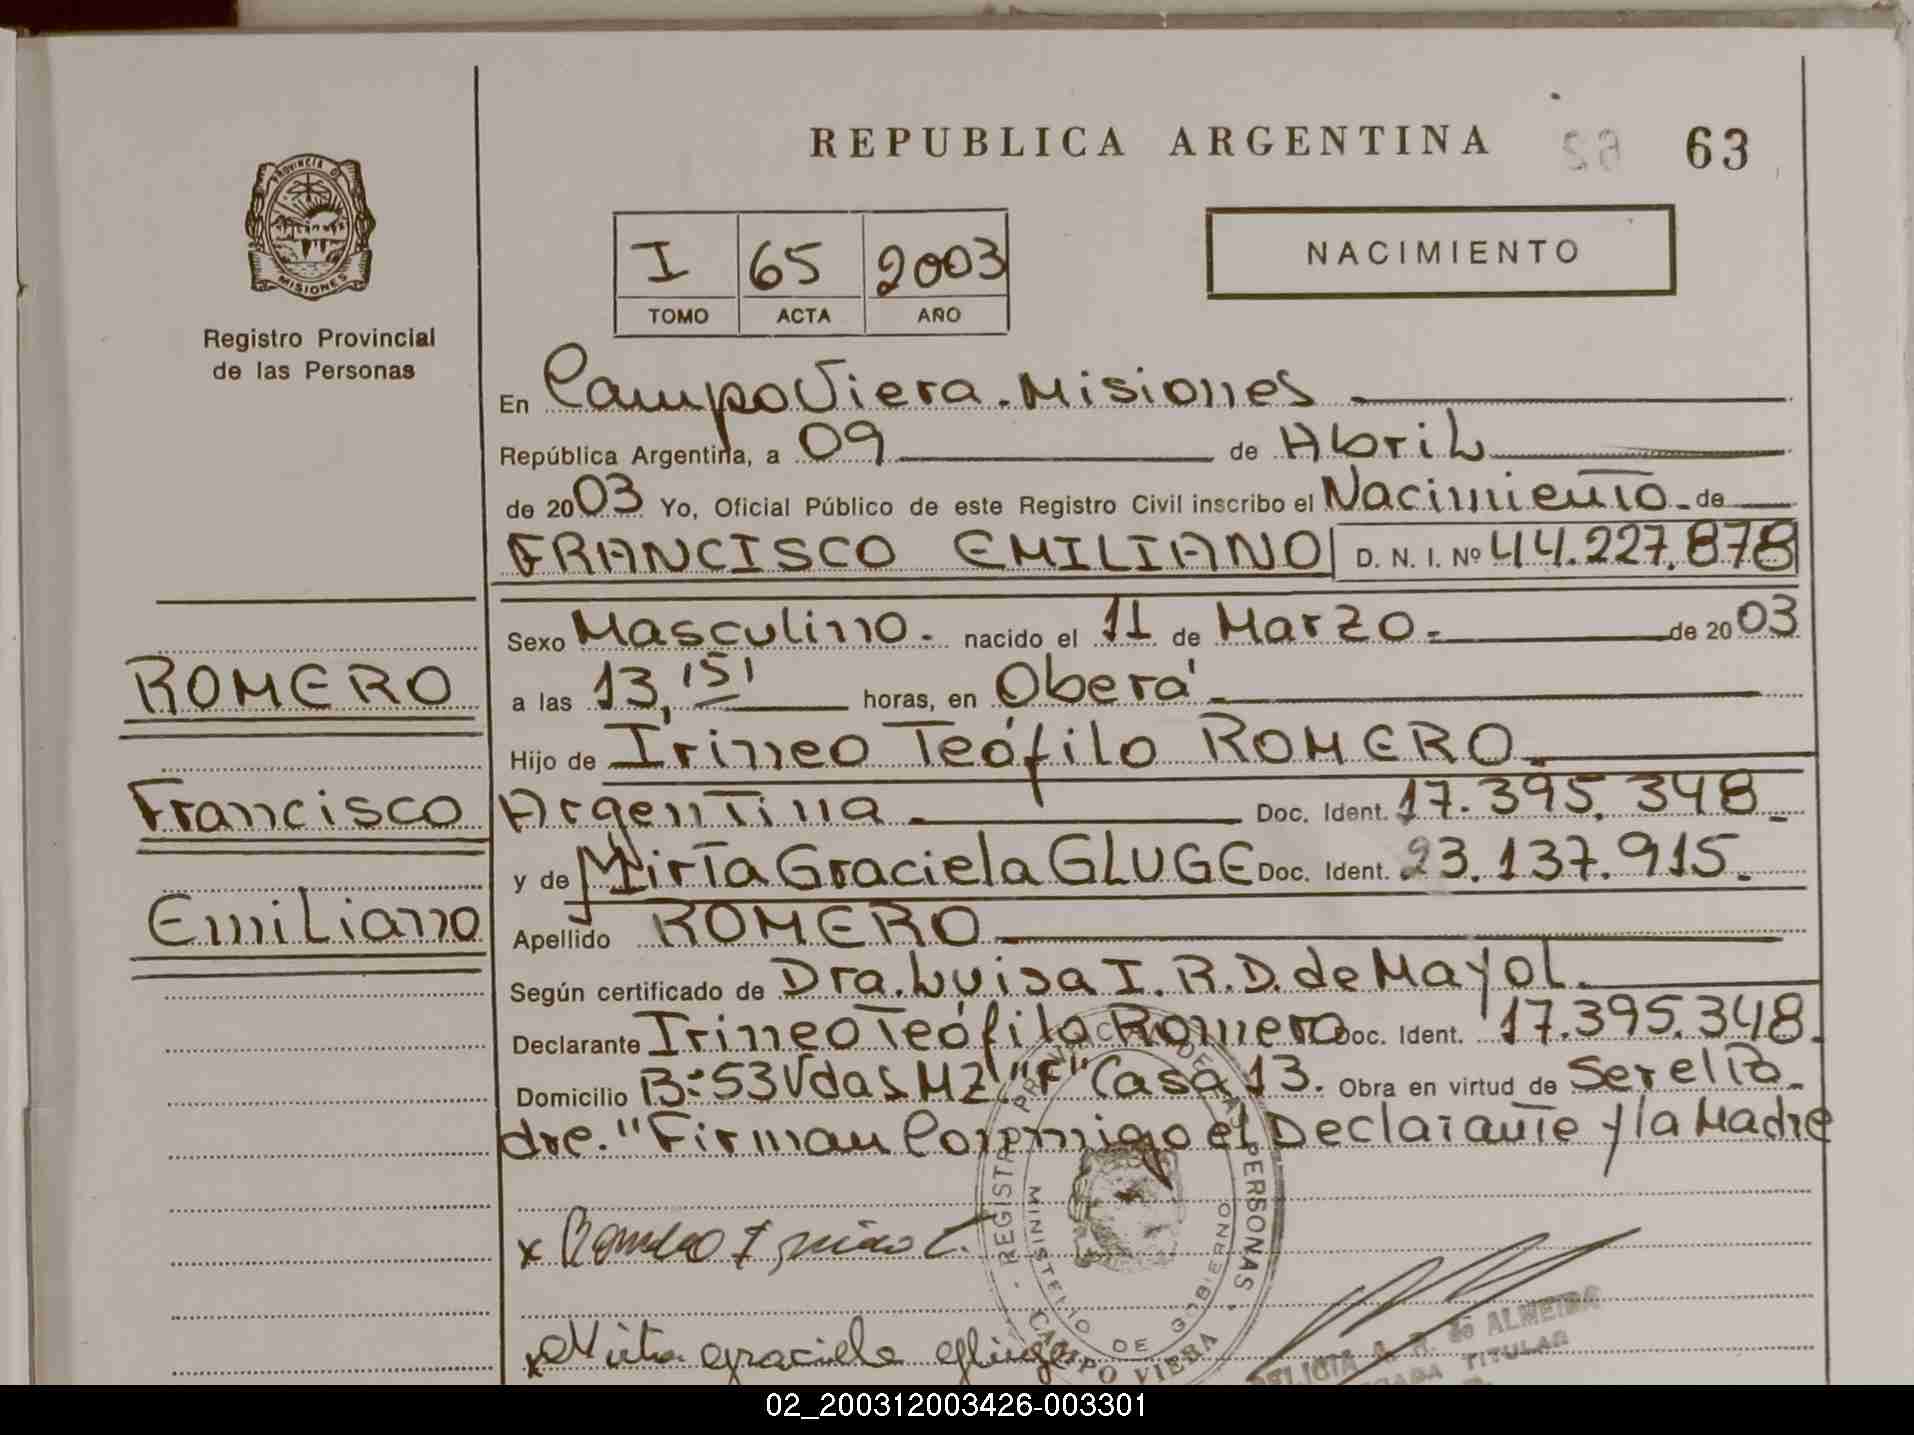 REPUBLICA ARGENTINA
62 63
PROVINCIA DE MISIONES
Registro Provincial
de las Personas
I 65 2003
TOMO ACTA AÑO
NACIMIENTO
En Campo Viera. Misiones
República Argentina, a 09 de Abril
de 2003 Yo, Oficial Público de este Registro Civil inscribo el Nacimiento de
FRANCISCO EMILIANO D. N. I. Nº 44.227.878
Sexo Masculino. nacido el 11 de Marzo de 2003
a las 13,15' horas, en Oberá
Hijo de Irineo Teófilo ROMERO
Argentina Doc. Ident. 17.395.348
y de Mirta Graciela GLUGE Doc. Ident. 23.137.915.
Apellido ROMERO
Según certificado de Dra. Luisa I. R. D. de Mayol.
Declarante Irineo Teófilo Romero Doc. Ident. 17.395.348.
Domicilio B: 53 Vdas MZ. "F" Casa 13. Obra en virtud de Ser el Pa
dre. "Firman Conmigo el Declarante y la Madre
ROMERO
Francisco
Emiliano
x Romero Irineo T.
x Mirta graciela gluge
REGISTRO PROVINCIAL DE LAS PERSONAS
MINISTERIO DE GOBIERNO
CAMPO VIERA
DELICIA A. R. de ALMEIRA
TITULAR
02_200312003426-003301